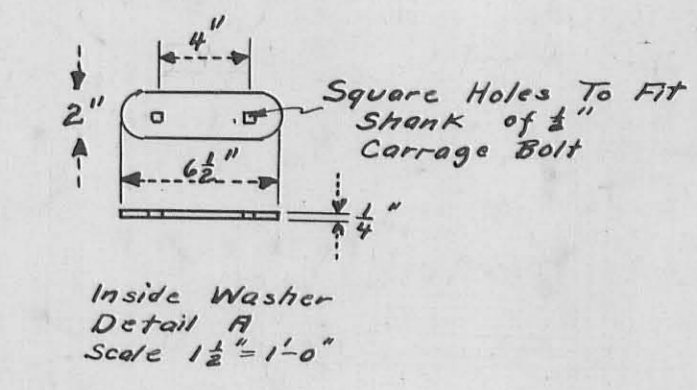 4"
2"
Square Holes To Fit
Shank of ½"
Carrage Bolt
6½"
¼"
Inside Washer
Detail A
Scale 1½"=1'-0"